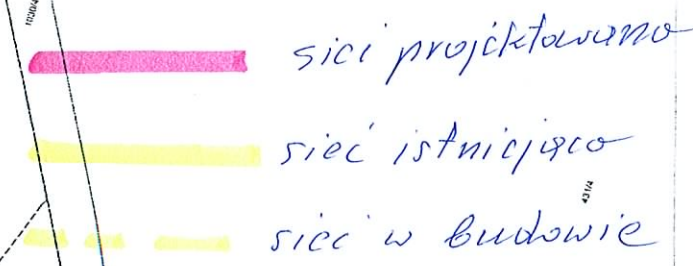 1030/4
sieć projektowana
sieć istniejąca
431/4
sieć w budowie